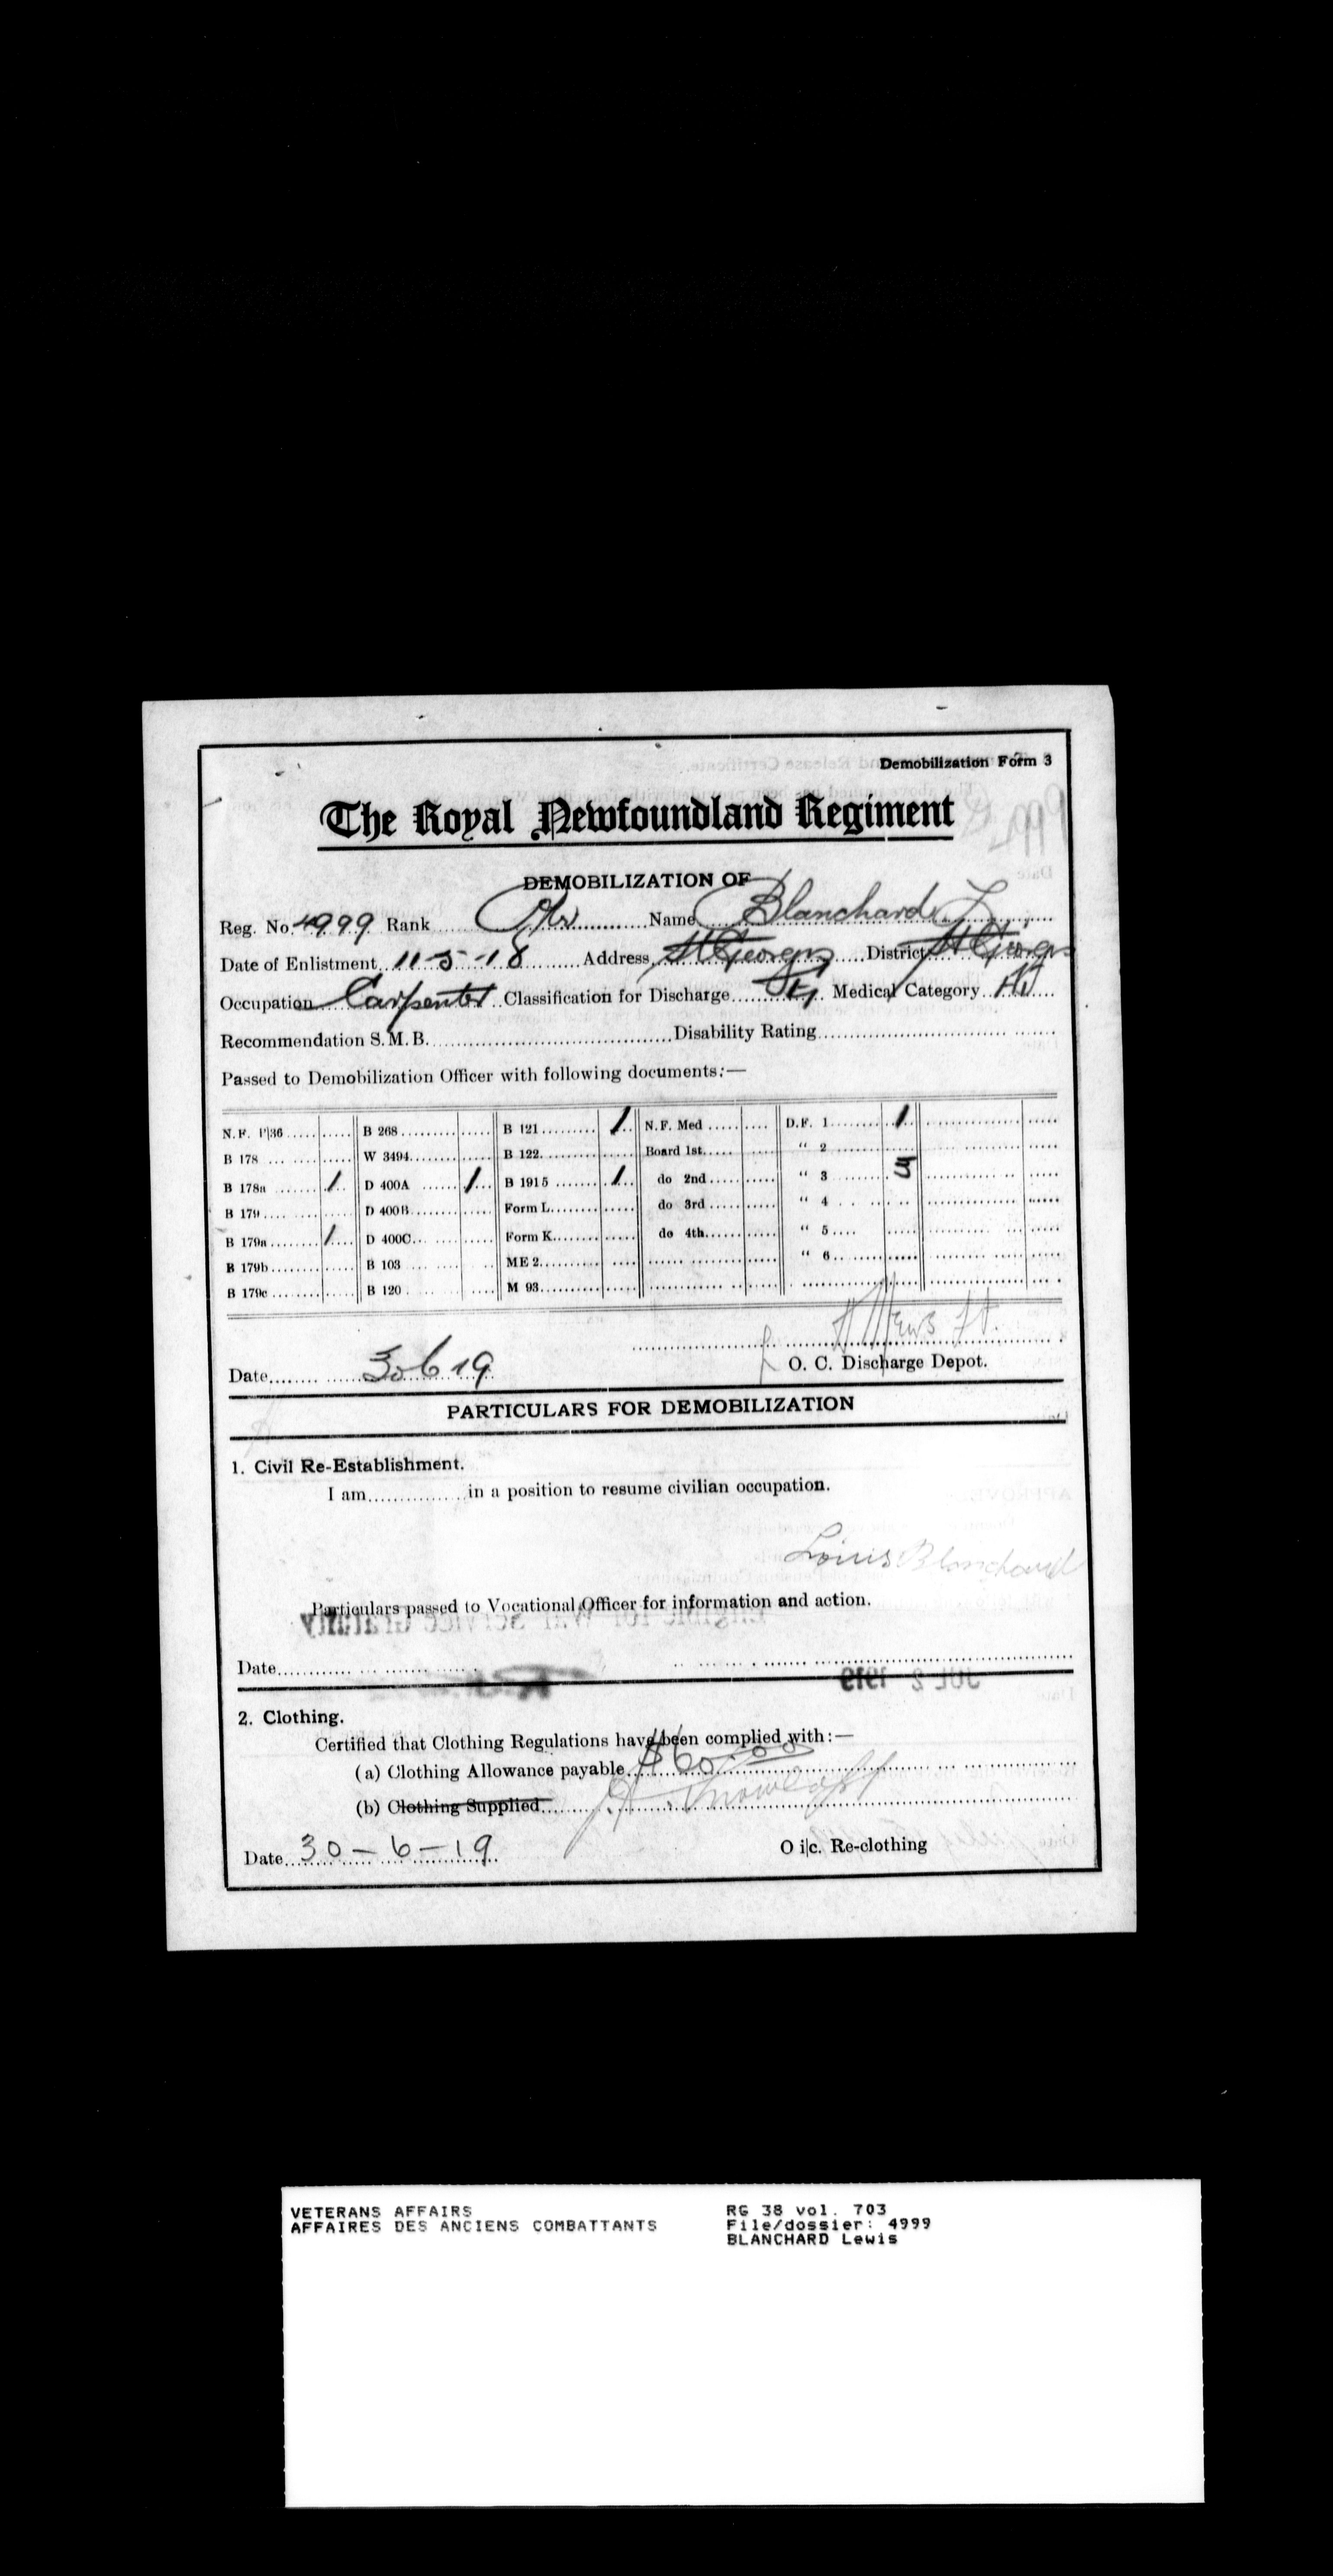 Demobilization Form 3
The Royal Newfoundland Regiment
DEMOBILIZATION OF
Reg. No. 4999 Rank Pte Name Blanchard L
Date of Enlistment 11-5-18 Address St Georges District St Georges
Occupation Carpenter Classification for Discharge Medical Category
Recommendation S.M.B. Disability Rating
Passed to Demobilization Officer with following documents:—
N.F. P|36 B 268 B 121 / N.F. Med D.F. 1 /
B 178 W 3494 B 122 Board 1st " 2
B 178a / D 400A / B 1915 / do 2nd " 3 3
B 179 D 400B Form L do 3rd " 4
B 179a / D 400C Form K do 4th " 5
B 179b B 103 ME 2 " 6
B 179c B 120 M 93
Date 30 6 19 O. C. Discharge Depot.
PARTICULARS FOR DEMOBILIZATION
1. Civil Re-Establishment.
I am in a position to resume civilian occupation.
Louis Blanchard
Particulars passed to Vocational Officer for information and action.
Date
2. Clothing.
Certified that Clothing Regulations have been complied with:—
(a) Clothing Allowance payable $60.00
(b) Clothing Supplied
Date 30-6-19 O i|c. Re-clothing
VETERANS AFFAIRS RG 38 vol. 703
AFFAIRES DES ANCIENS COMBATTANTS File/dossier: 4999
BLANCHARD Lewis